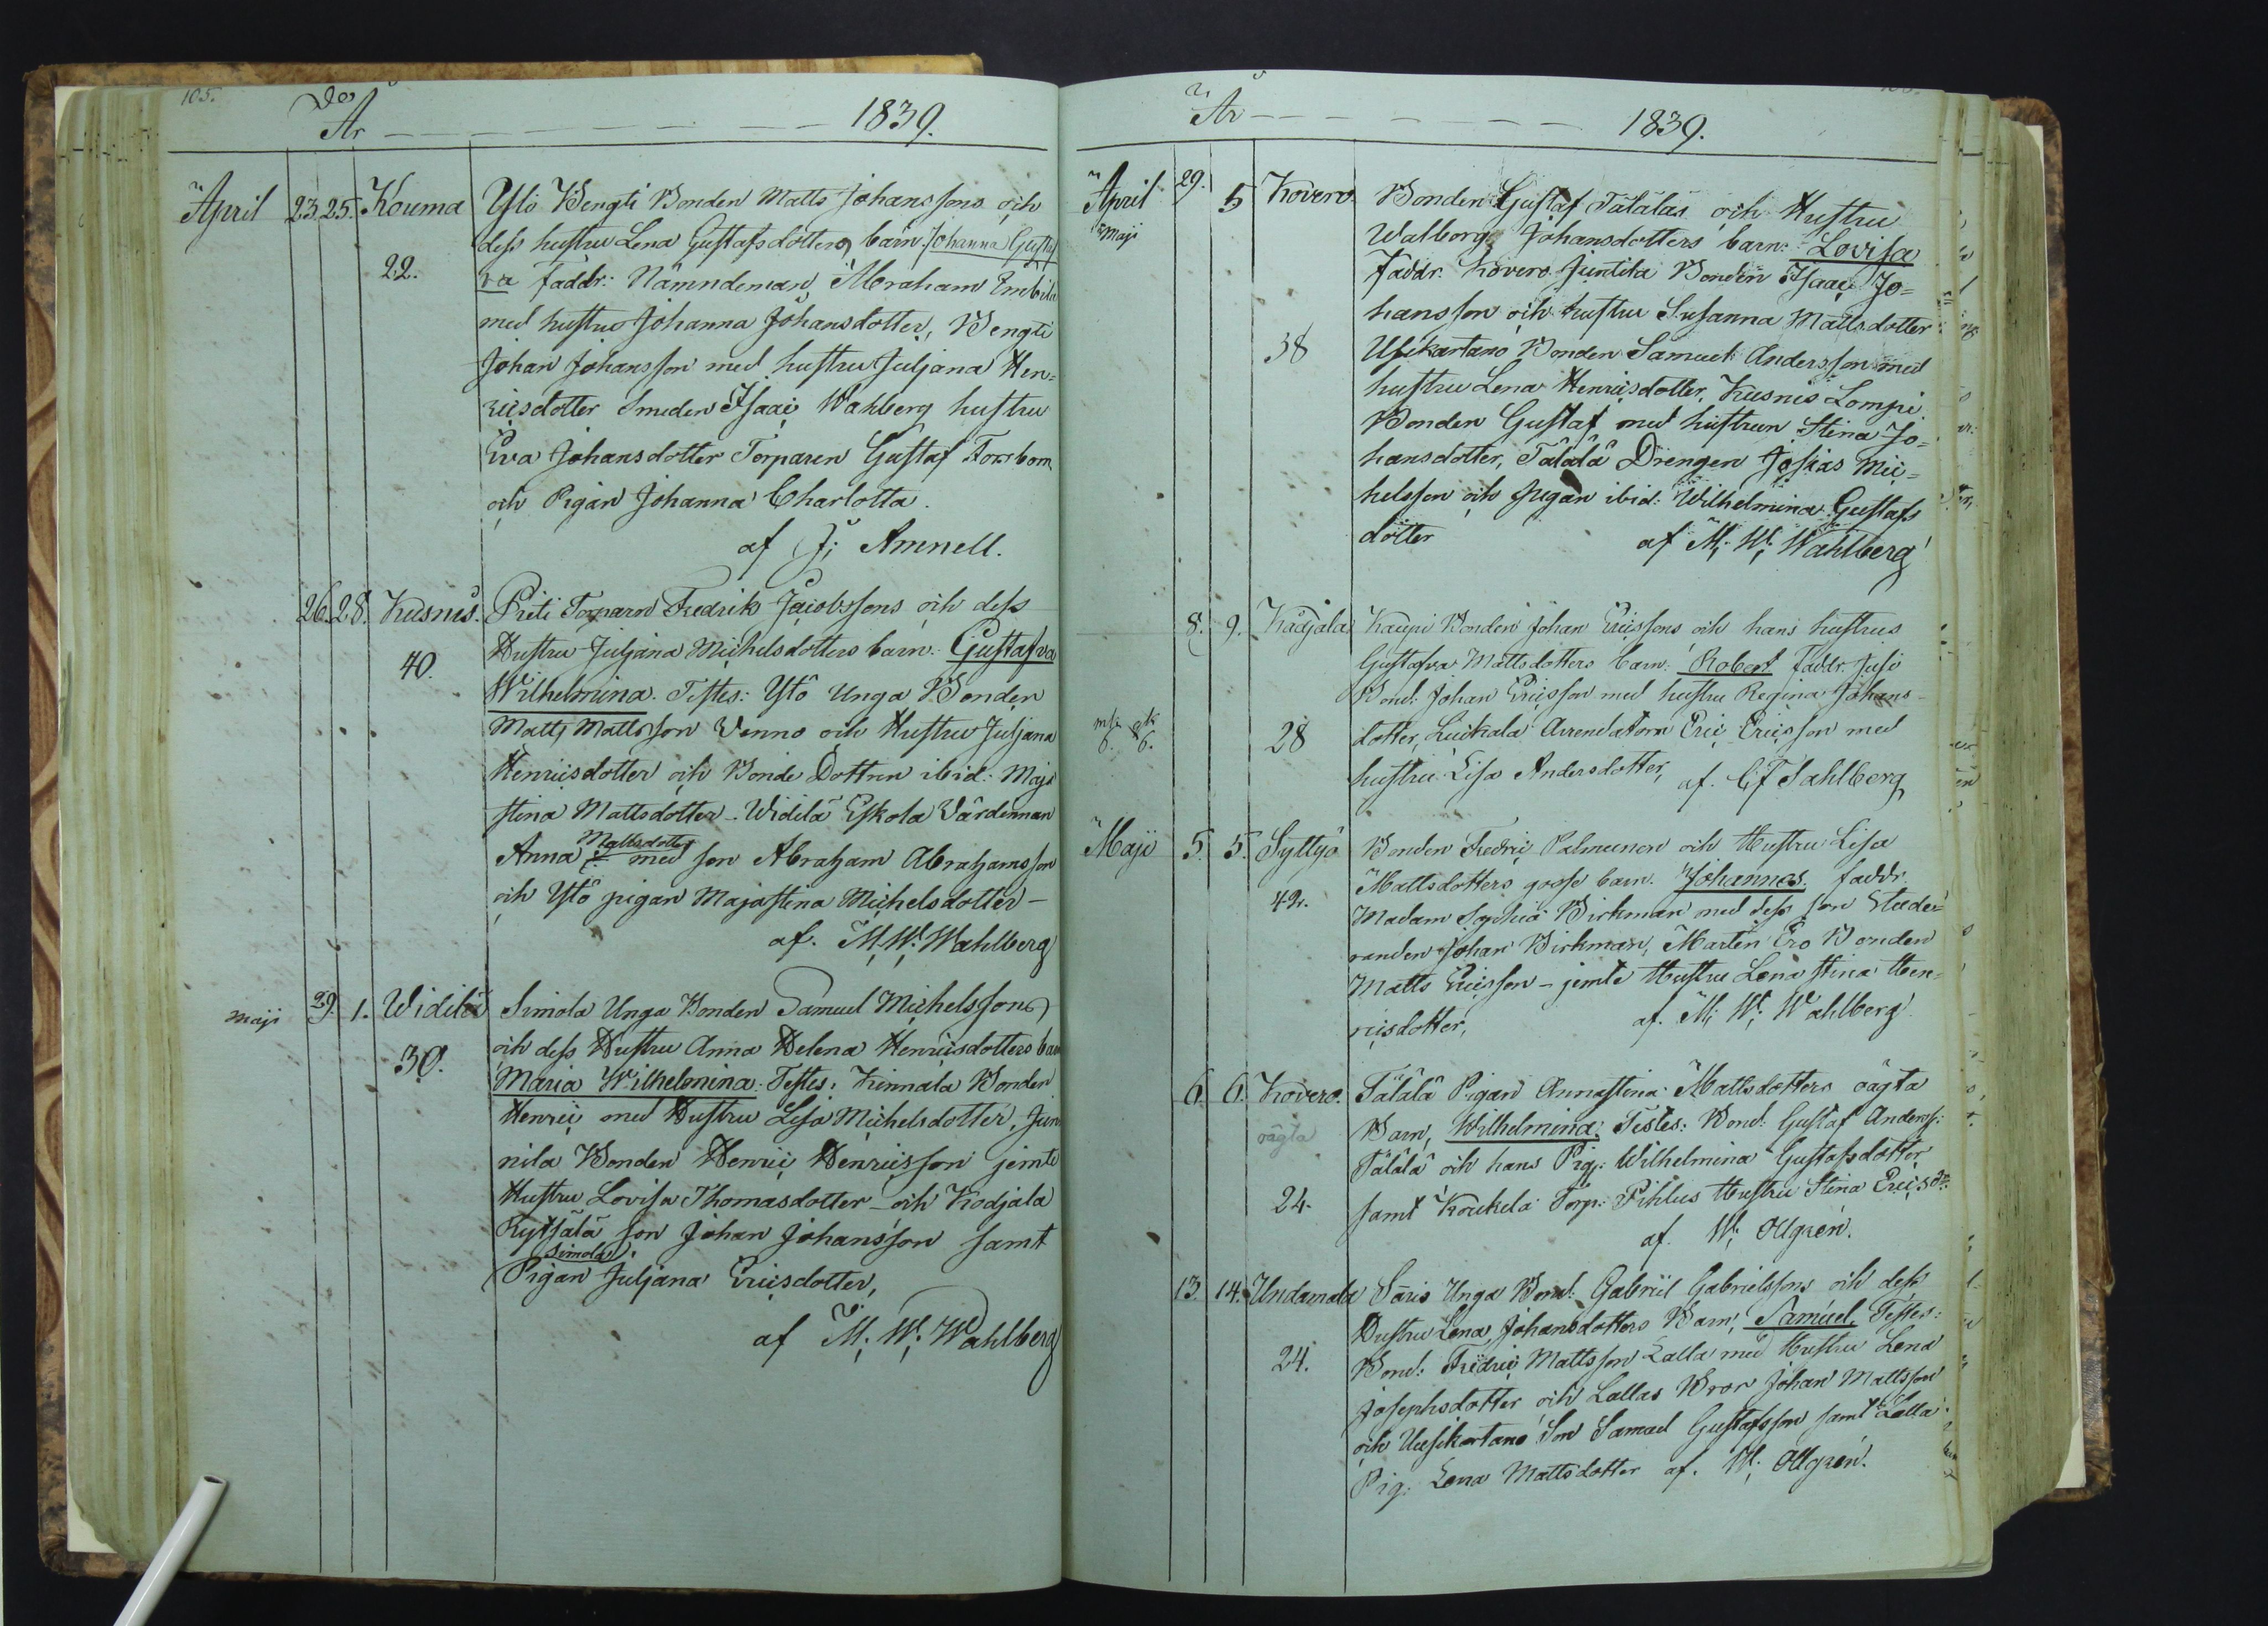 105.
Do
År 1839.
April 23. 25. Kouma Ylö Bengti Bonden Matts Johanssons och
dess hustru Lena Gustafsdotters barn: Johanna Gustaf
22. va Faddr: Nämndeman Abraham
med hustru Johanna Johansdotter, Bengti
Johan Johansson med hustru Juljana Hen=
ricsdotter Smeden Isaac Wahberg hustru
Eva Johansdotter Torparen Gustaf Forsbom
och Pigan Johanna Charlotta.
af J: Amnell.
26. 28. Kusnis. Priti Torparn Fredrik Jacobssons och dess
40. Hustru Juljana Michelsdotters barn: Gustafva
Wilhelmina. Testes: Ylö Unga Bonden
Matts Mattsson Venno och Hustru Juljana
Henricsdotter och Bonde Dottren ibid: Maja
stina Mattsdotter - Widilä Eskola Värdinnan
Mattsdotter
Anna med son Abraham Abrahamsson
och Ylö pigan Majastina Michelsdotter -
af. M. W: Wahlberg
maji 29. 1. Widilä Simola Unga Bonden Samuel Michelssons
30. och dess Hustru Anna Helena Henricsdotters barn
Maria Wilhelmina: Testes: Kinnala Bonden
Henric med Hustru Lisa Michelsdotter, Jun
nila Bonden Henric Henricsson jemte
Hustru Lovisa Thomasdotter - och Kodjala
Rytsälä son Johan Johansson samt
Simola
Pigan Juljana Ericsdotter,
af M: W: Wahlberg
År 1839.
April 29. 5 Kovero Bonden Gustaf Täläläs och Hustru
Maji Walborg Johansdotters barn: Lovisa
Faddr. Kovero Juntila Bonden Isaac Jo=
hansson och hustru Susanna Mattsdotter
38 Usikartano Bonden Samuel Andersson med
hustru Lena Henricsdotter, Kusnis Lompi
Bonden Gustaf med hustrun Stina Jo=
hansdotter, Tälälä Drengen Josias Mic=
helsson och pigan ibid: Wilhelmina Gustafs
dotter af M: W: Wahlberg
8. 9. Kådjala Kaupi Bonden Johan Ericssons och hans hustrus
Gustafva Mattsdotters barn: Robert Faddr. Jusi
Bond: Johan Ericsson med hustru Regina Johans
28 dotter, Luckala Arrendatorn Eric Ericsson med
hustru Lisa Andersdotter, af. C: F Sahlberg
Maji 5. 5. Syttyö Bonden Fredric Palmunen och Hustru Lisa
42. Mattsdotters gosse barn. Johannes. faddr.
Madam Sophia Birkman med dess son Stude=
randen Johan Birkman, Marten Ero Bonden
Matts Ericsson - jemte Hustru Lena Stina Hen=
ricsdotter, af. M: W: Wahlberg
6. 6. Kovero. Tälälä Pigan Annastina Mattsdotters oägta
oägta Barn, Wilhelmina: Testes: Bond: Gustaf Anderss:
Tälälä och hans Pig: Wilhelmina Gustafsdotter
24. samt Koukela Torp: Pihlus Hustru Stina Ericsdr
af. W: Ollgren.
13. 14. Undamala Säris Unga Bond: Gabriel Gabrielssons och dess
Hustru Lena Johansdotters Barn, Samuel, Testes:
24. Bond: Fredric Mattsson Lalla med Hustru Lena
Josephsdotter och Lallas Bror Johan Mattsson
och Uusikartano Son Samuel Gustafsson samt Lalla
Pig: Lena Mattsdotter af. W: Ollgren.